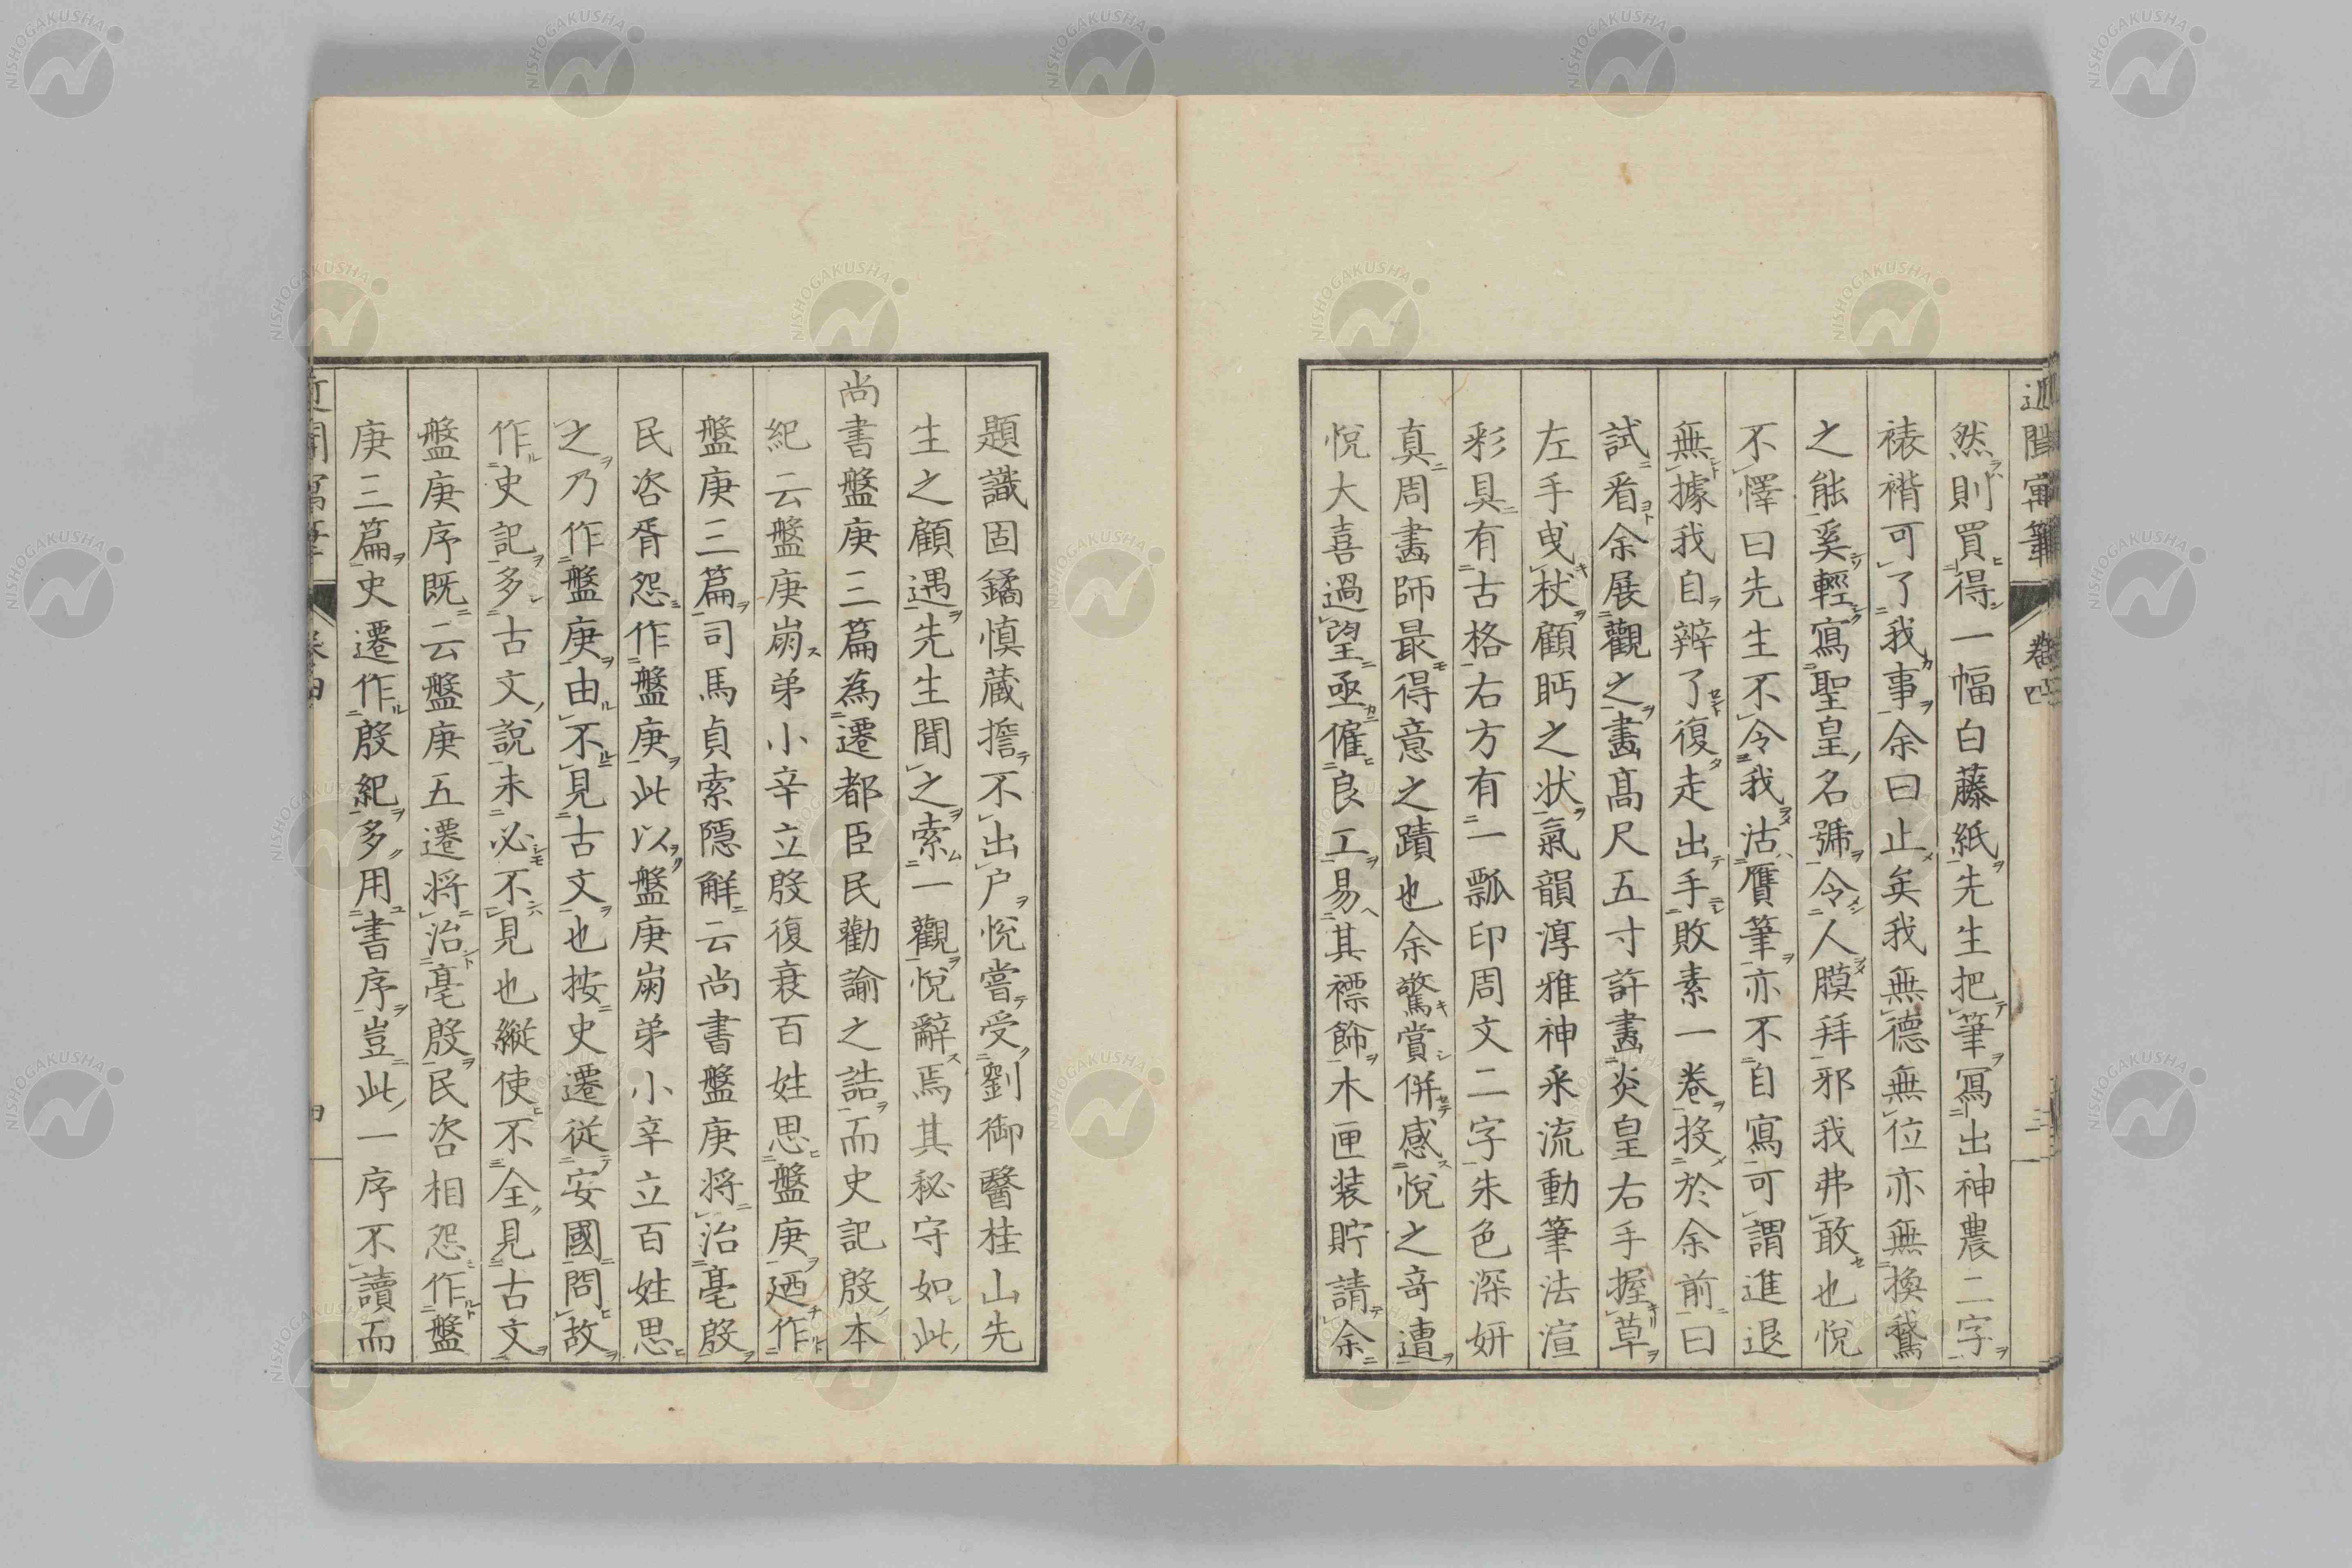 近聞寓筆 卷四 三
然則買得一幅白藤紙先生把筆寫出神農二字
裱褙可了我事余曰止矣我無德無位亦無換鵞
之能奚輕寫聖皇名號令人膜拜邪我弗敢也悅
不懌曰先生不令我沽贋筆亦不自寫可謂進退
無據我自辨了復走出手敗素一卷投於余前曰
試看余展觀之畵高尺五寸許畵炎皇右手握草
左手曳杖顧眄之狀氣韻淳雅神采流動筆法渲
彩具有古格右方有一瓢印周文二字朱色深妍
真周畵師最得意之蹟也余驚賞併感悅之竒遭
悅大喜過望亟倩良工易其褾飾木匣装貯請余
題識固鐍慎蔵擔不出户悅嘗受劉御醫桂山先
生之顧遇先生聞之索一觀悅辭焉其秘守如此
尚書盤庚三篇為遷都臣民勸諭之誥而史記殷本
紀云盤庚崩弟小辛立殷復衰百姓思盤庚廼作
盤庚三篇司馬貞索隱解云尚書盤庚將治亳殷
民咨胥怨作盤庚此以盤庚崩弟小辛立百姓思
之乃作盤庚由不見古文也按史遷従安國問故
作史記多古文說未必不見也縦使不全見古文
盤庚序既云盤庚五遷将治亳殷民咨相怨作盤
庚三篇史遷作殷紀多用書序豈此一序不讀而
近聞寓筆 卷四 四
NISHOGAKUSHA